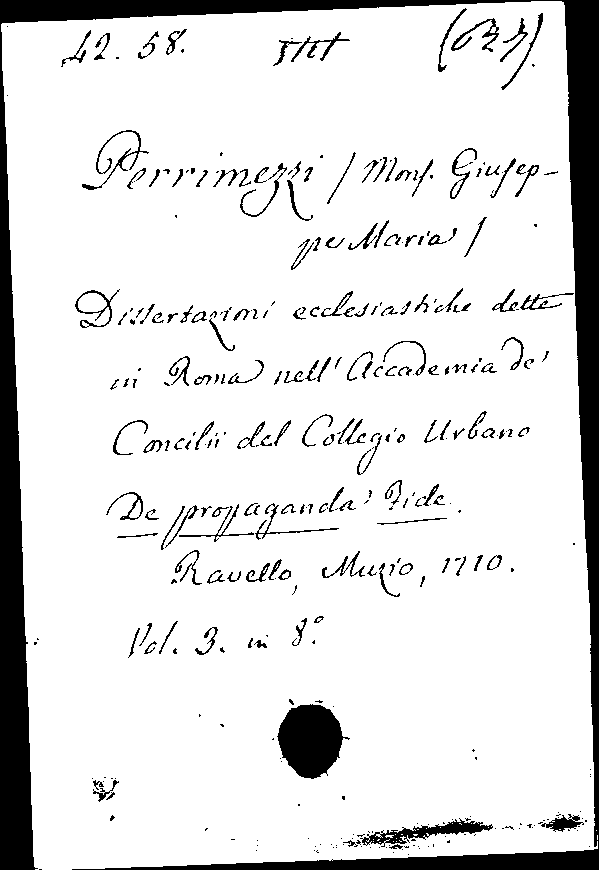 42. 58.
Perrimezzi / Mons. Giusep-
pe Maria /
Dissertazioni ecclesiastiche dette
in Roma nell' Accademia de'
Concilii del Collegio Urbano
De propaganda Fide.
Ravello, Muzio, 1710.
Vol. 3. in 8°.